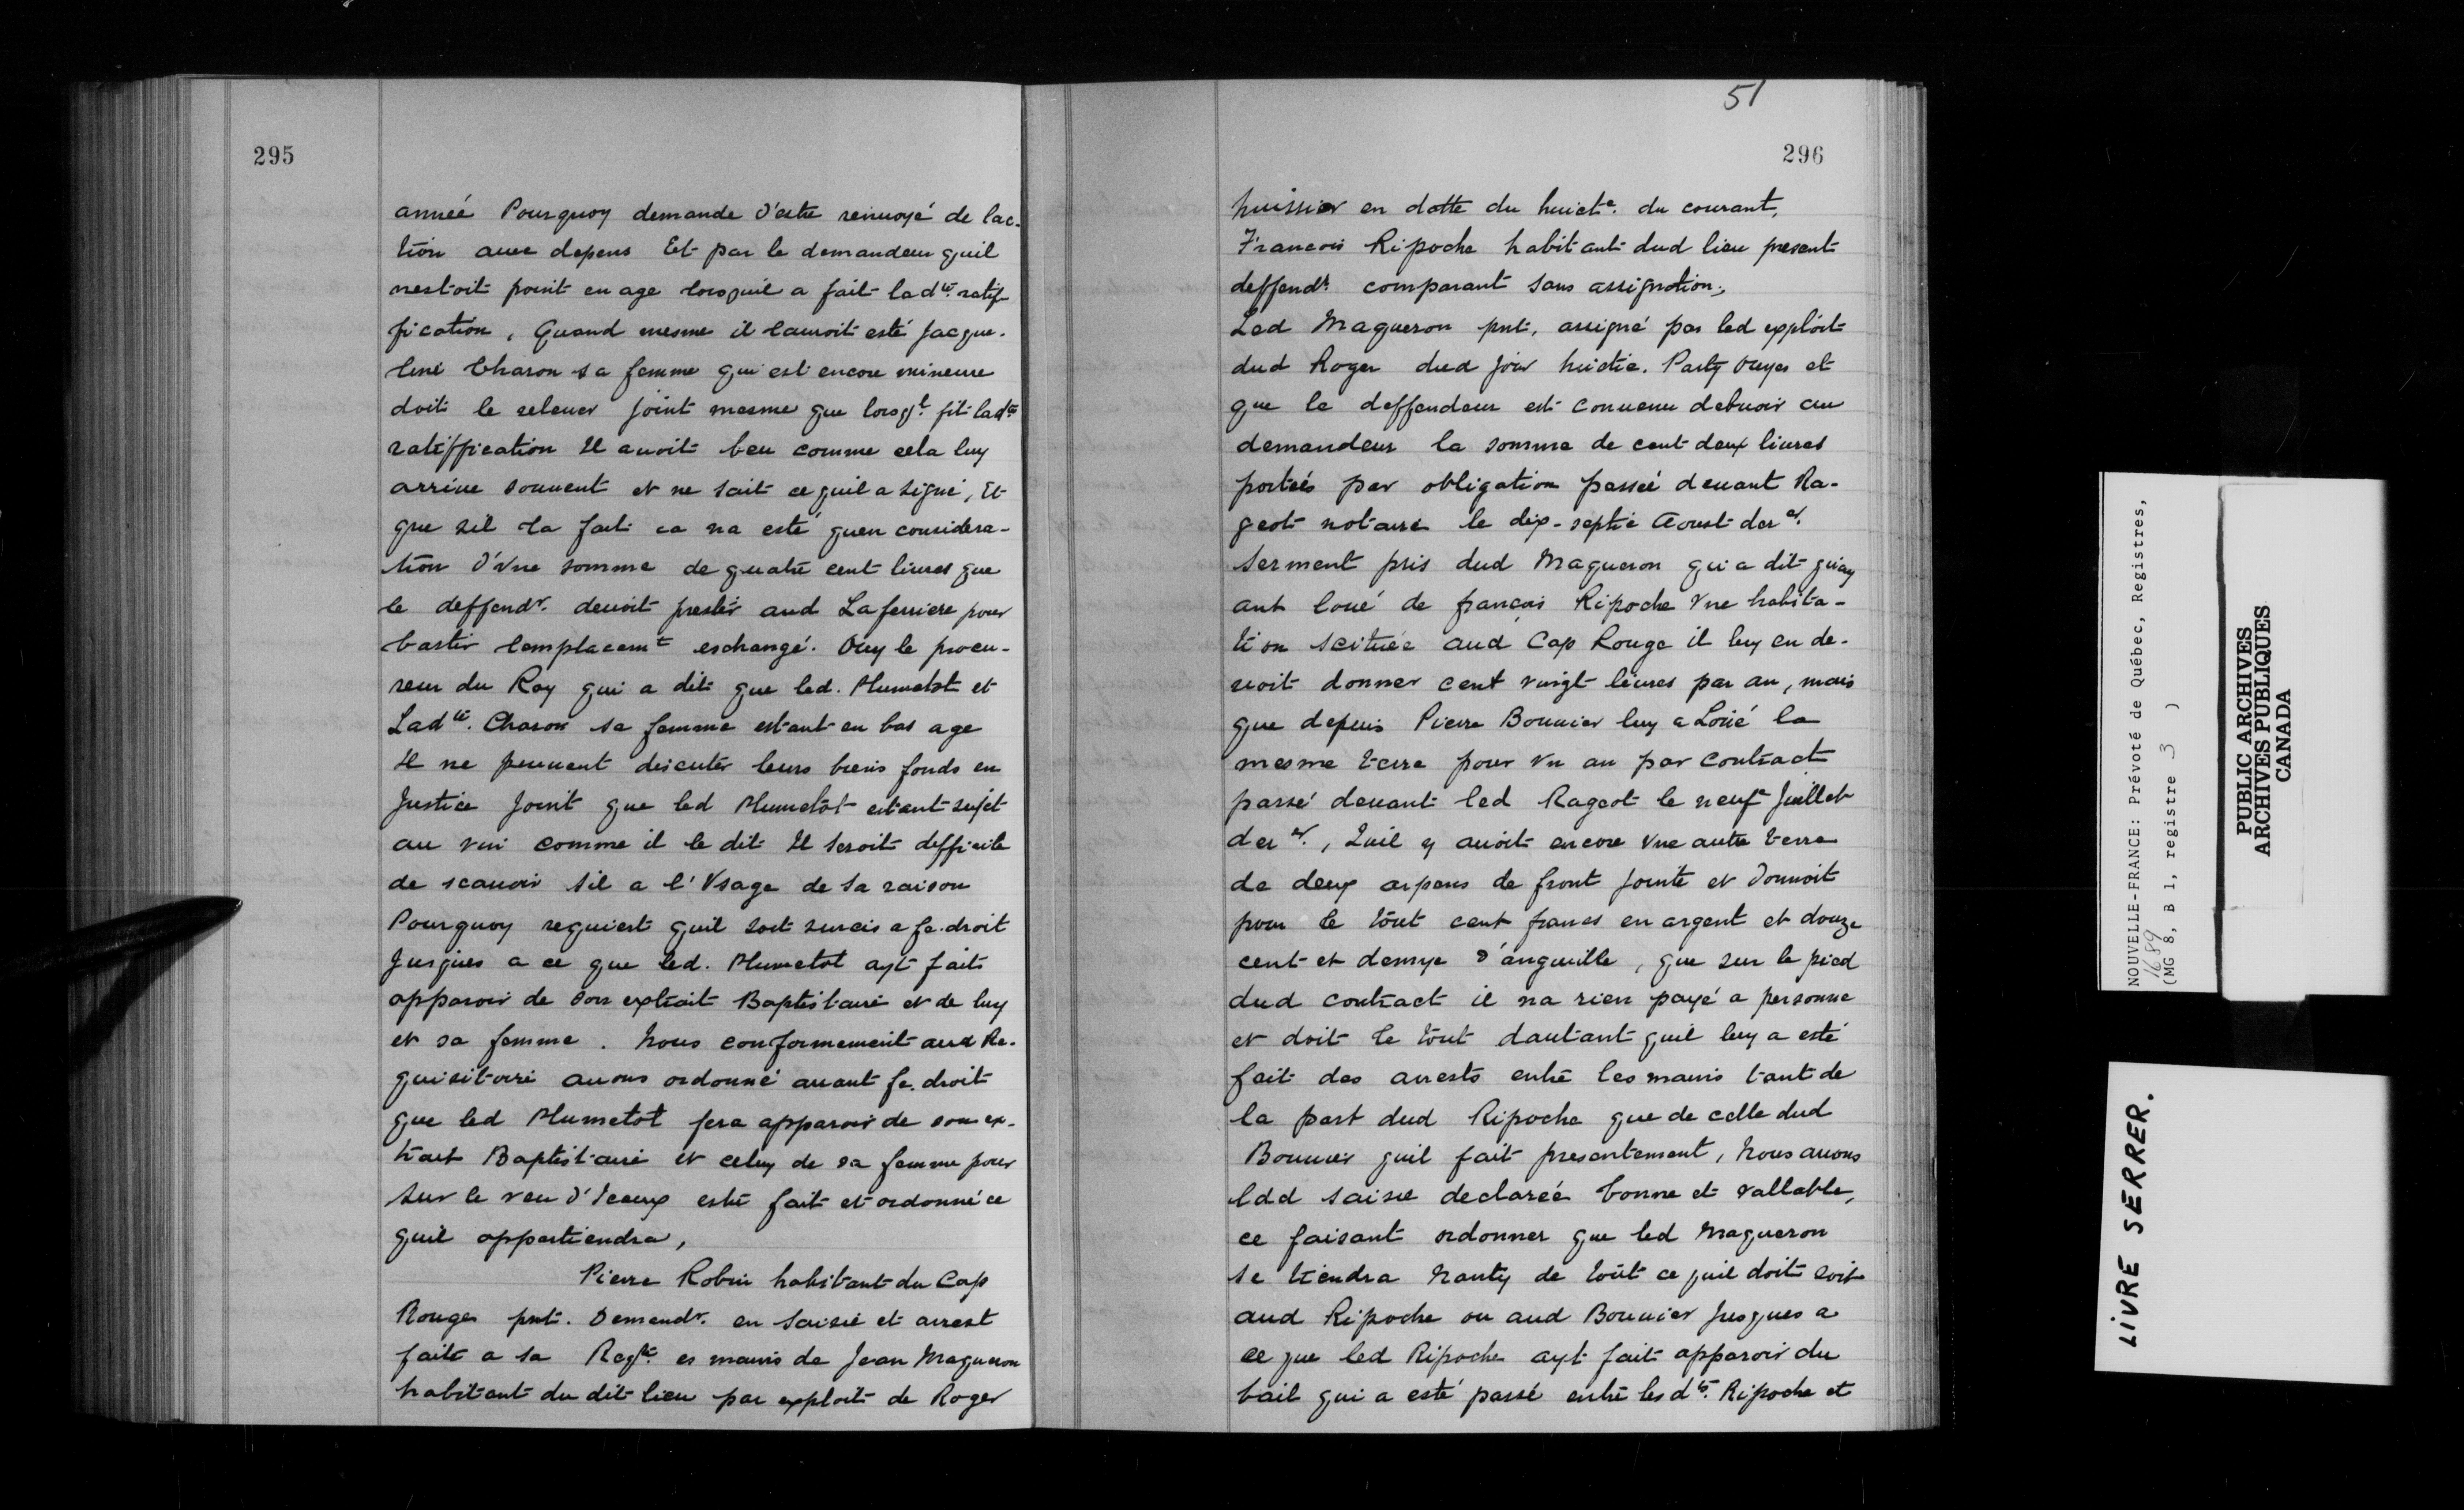 295
anneé Pourquoy demande d'estre renuoyé de lac-
tion auec depens Et par le demandeur quil
nestoit point en age lorsquil a fait lad.te ratif-
fication, Quand mesme il lauroit esté Jacque-
line Charon sa femme qui est encore mineure
doit le releuer joint mesme que lorsql. fit lad.te
ratiffication Il auoit beu comme cela luy
arriue souuent et ne sait ce quil a signé, Et
que sil la fait ca na esté quen considera-
tion d'vne somme de quatre cent liures que
le deffendr. deuoit prester aud Laferriere pour
bastir lemplacemt eschangé. Ouy le procu-
reur du Roy qui a dit que led. Plumetot et
Lad.te Charon sa femme estant en bas age
Il ne peuuent discuter leurs biens fonds en
Justice Joint que led Plumetot estant sujet
au vin comme il le dit Il seroit difficile
de scauoir sil a l'Vsage de sa raison
Pourquoy requiert quil soit surcis a fe. droit
Jusques a ce que led. Plumetot ayt fait
apparoir de son extrait Baptistaire et de luy
et sa femme. Nous conformement aud Re-
quisitoire auons ordonné auant fe. droit
que led Plumetot fera apparoir de son ex-
trait Baptistaire et celuy de sa femme pour
sur le veu d'Iceux estre fait et ordonné ce
quil appartiendra,
Pierre Robin habitant du Cap
Rouge pnt. Demandr. en saisie et arrest
faite a sa Reqte. es mains de Jean Magueron
habitant du dit lieu par exploit de Roger
51
296
huissier en datte du huicte. du courant,
Francois Ripoche habitant dud lieu present
deffendr. comparant sans assignation,
Led Magueron pnt. assigné par led exploit
dud Roger dud jour huictie. Party ouyes et
que le deffendeur est conuenu debuoir au
demandeur la somme de cent deux liures
porteés par obligation passeé deuant Ra-
geot notaire le dix-septie Aoust der er.
serment pris dud Magueron qui a dit quay
ant loué de françois Ripoche Vne habita-
tion scitueé aud Cap Rouge il luy en de-
uoit donner cent vingt liures par an, mais
que depuis Pierre Bouuier luy a Loüé la
mesme terre pour vn an par contract
passé deuant led Rageot le neufe Juillet
der er., Quil y auoit encore Vne autre terre
de deux arpens de front jointe et donnoit
pour le tout cent francs en argent et douze
cent et demye d'anguille, que sur le pied
dud contract il na rien payé a personne
et doit le tout dautant quil luy a esté
fait des arrests entre les mains tant de
la part dud Ripoche que de celle dud
Bouuier quil fait presentement, Nous auons
ldd saisie declareé bonne et vallable,
ce faisant ordonner que led Magueron
se tiendra nanty de tout ce quil doit soit
aud Ripoche ou aud Bouuier Jusques a
ce que led Ripoche ayt fait apparoir du
bail qui a esté passé entre lesd.ts Ripoche et
NOUVELLE-FRANCE: Prévoté de Québec, Registres,
1689
(MG 8, B 1, registre 3 )
PUBLIC ARCHIVES
ARCHIVES PUBLIQUES
CANADA
LIVRE SERRER.